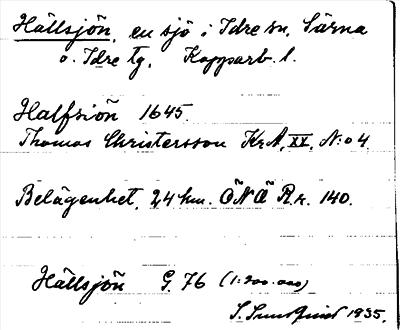 Hällsjön, en sjö i Idre sn, Särna
o. Idre tg, Kopparb. l.
Halfsiön 1645.
Thomas Christersson Kr.A, XX, N:o 4.
Belägenhet, 24 km. ÖNÖ R.r. 140.
Hällsjön G. 76 (1:200.000)
S. Sundquist 1935.